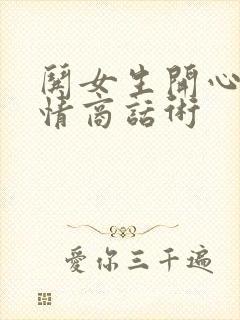 閧女生開心
情商話術
愛你三千遍